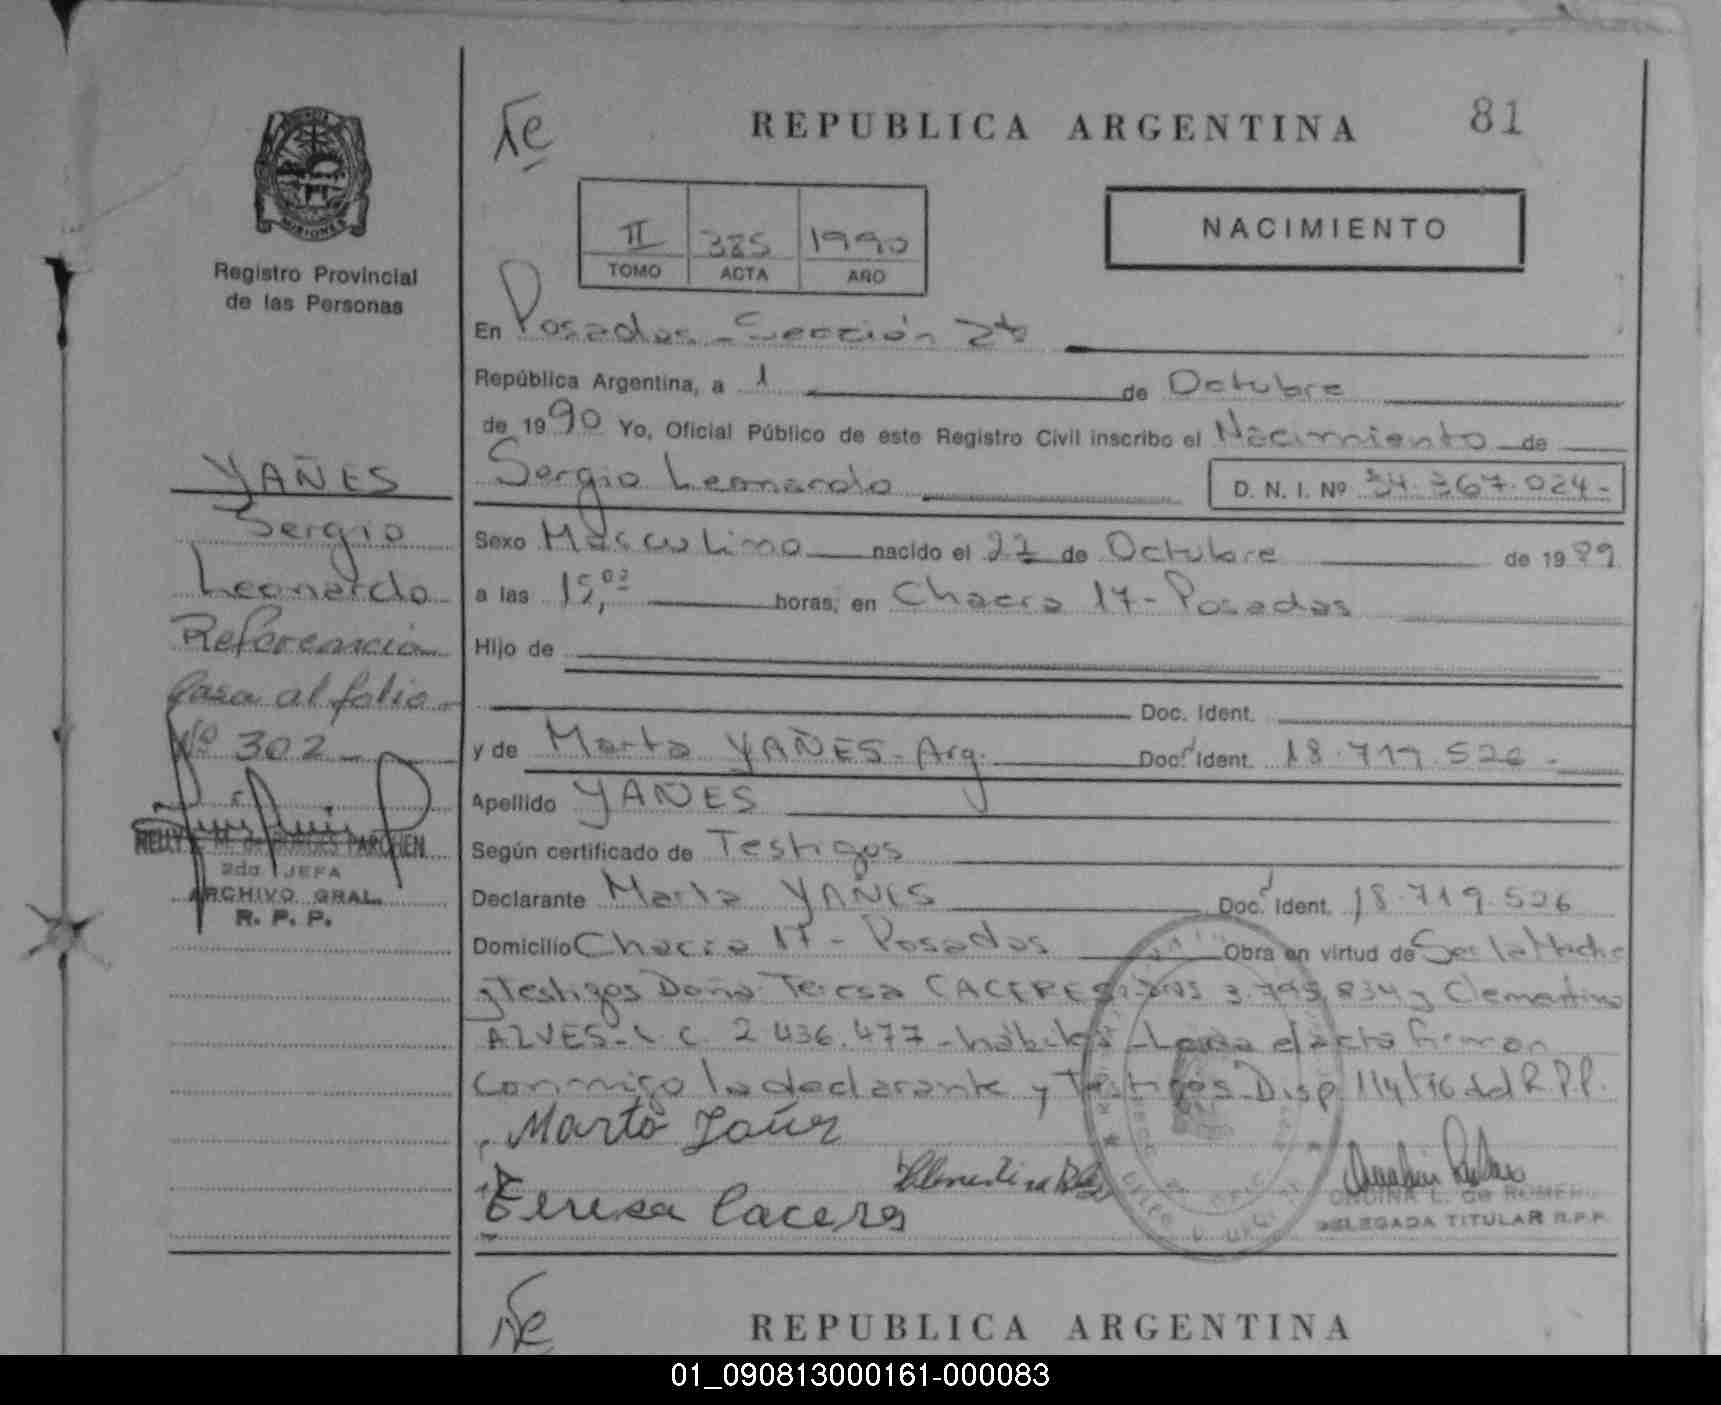 REPUBLICA ARGENTINA
81
MISIONES
Registro Provincial
de las Personas
II 385 1990
TOMO ACTA AÑO
NACIMIENTO
En Posadas - Sección 2ª
República Argentina, a 1 de Octubre
de 1990 Yo, Oficial Público de este Registro Civil inscribo el Nacimiento de
Sergio Leonardo D. N. I. Nº 34.367.024-
Sexo Masculino nacido el 27 de Octubre de 1989
a las 15,02 horas, en Chacra 17 - Posadas
Hijo de
Doc. Ident.
y de Marta YAÑES - Arg. Doc. Ident. 18.719.526-
Apellido YAÑES
Según certificado de Testigos
Declarante Marta YAÑES Doc. Ident. 18.719.526
Domicilio Chacra 17 - Posadas Obra en virtud de Ser la Madre
y Testigos Doña Teresa CACERES 3.795.834 y Clementina
ALVES - L.C. 2.436.477 - hábiles - Leida el acta firman
conmigo la declarante y Testigos Disp 114/76 del R.P.P.
Marta Yañez
Clementina
Teresa Caceres
ONDINA L. de ROMERO
DELEGADA TITULAR R.P.P.
YAÑES
Sergio
Leonardo
Referencia
Pasa al folio
Nº 302
NELLY PARCHEN
2da JEFA
ARCHIVO GRAL.
R. P. P.
REPUBLICA ARGENTINA
01_090813000161-000083